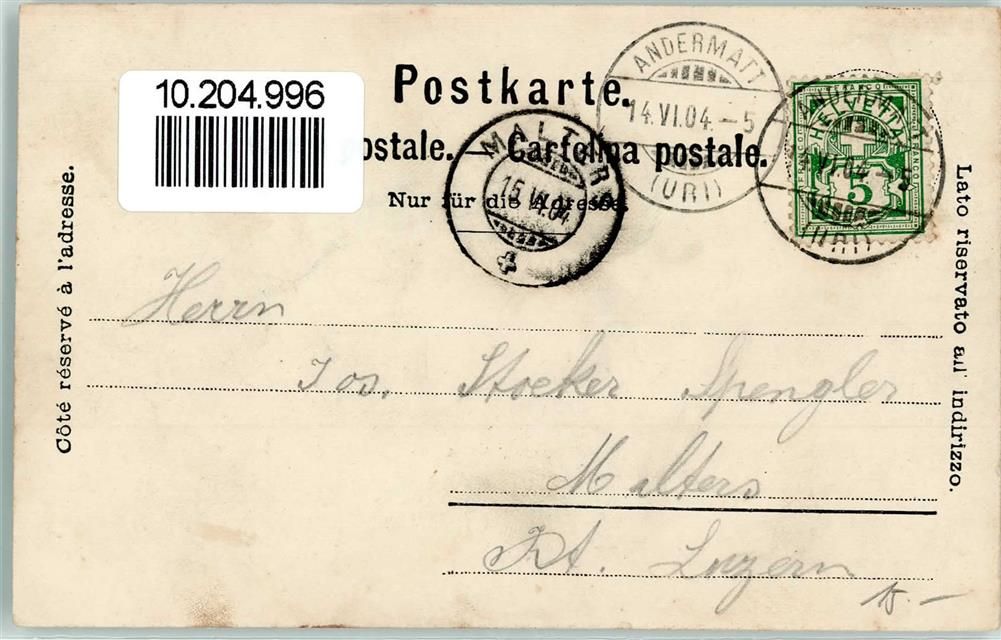 10.204.996
Postkarte.
ostale. Cartolina postale.
Nur für die Adresse.
Côté réservé à l'adresse.
Lato riservato all' indirizzo.
ANDERMATT
14.VI.04.-5
(URI)
MALTERS
15.VI.04
ANDERMATT
14.VI.04.-5
(URI)
FRANCO
HELVETIA
5
Herrn
Jos. Stocker Spengler
Malters
Kt. Luzern
15.-